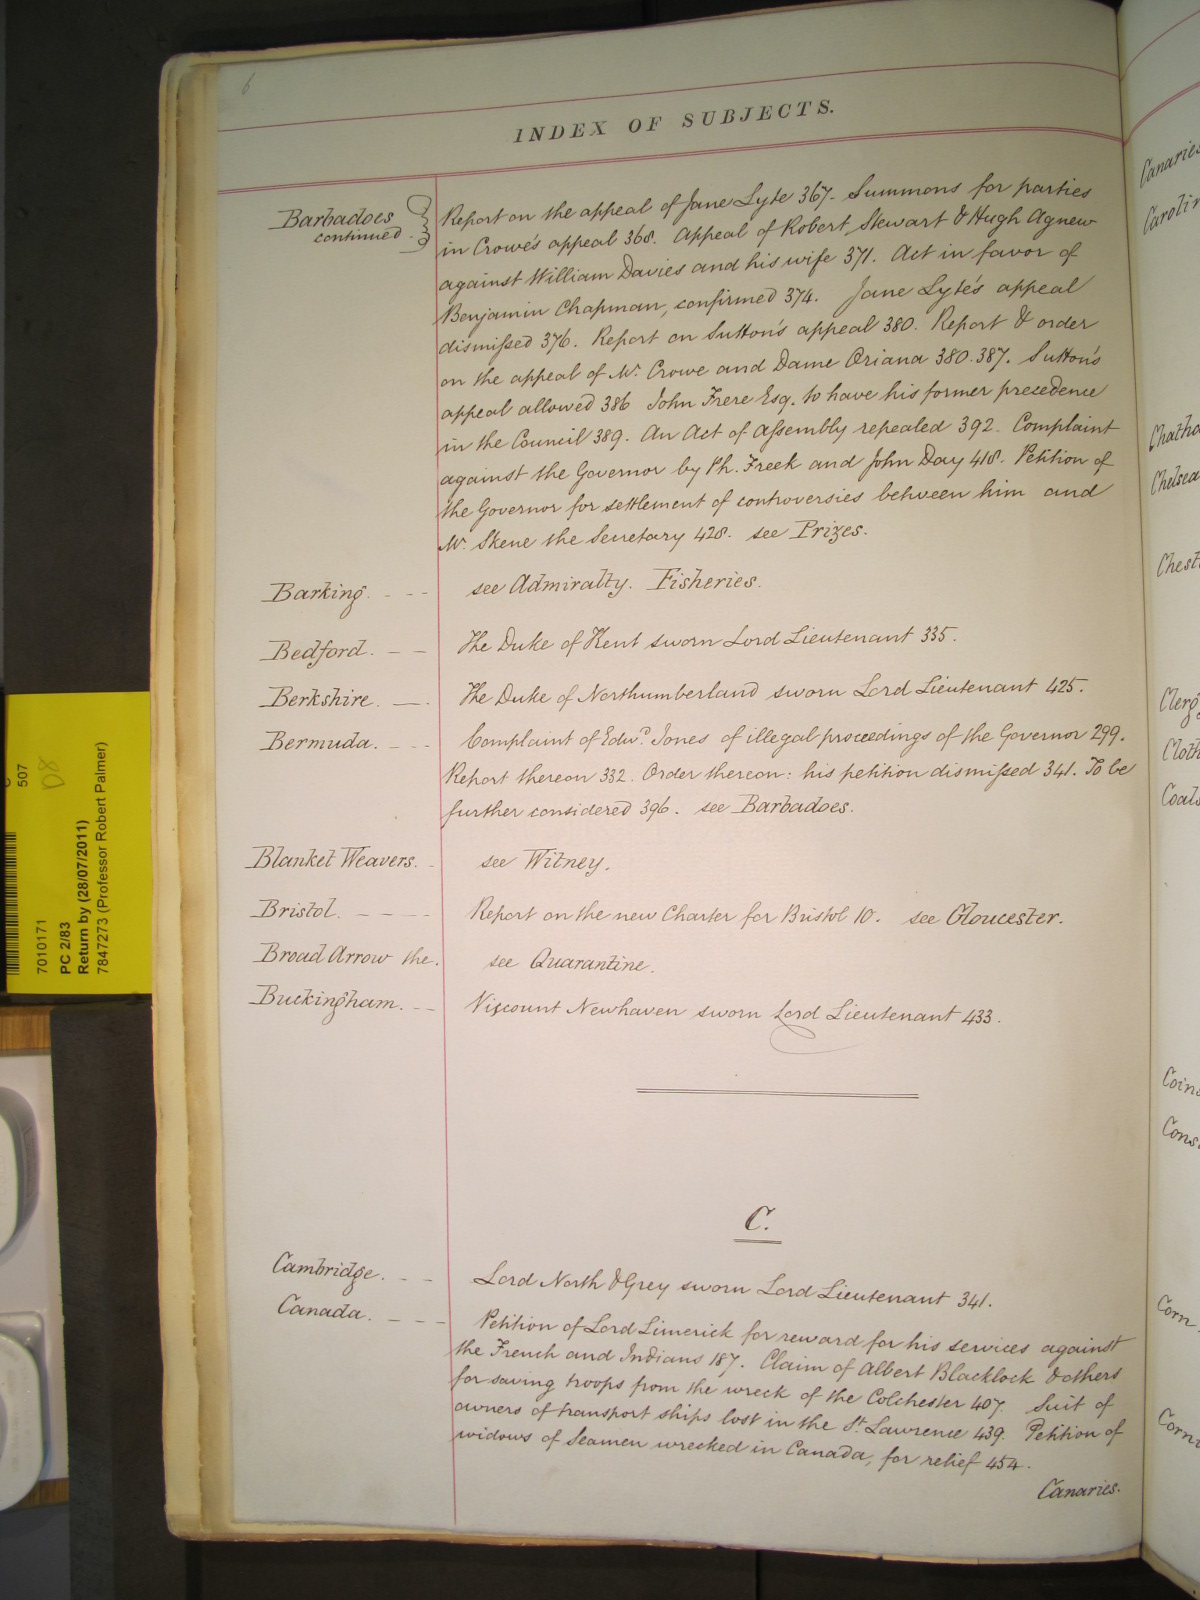 6
INDEX OF SUBJECTS.
Barbadoes continued. Report on the appeal of Jane Lyte 367. Summons for parties
in Crowe's appeal 368. Appeal of Robert Stewart & Hugh Agnew
against William Davies and his wife 371. Act in favor of
Benjamin Chapman, confirmed 374. Jane Lyte's appeal
dismissed 376. Report on Sutton's appeal 380. Report & order
on the appeal of Mr. Crowe and Dame Oriana 380.387. Sutton's
appeal allowed 386 John Frere Esq. to have his former precedence
in the Council 389. An Act of Assembly repealed 392. Complaint
against the Governor by Ph. Freek and John Day 418. Petition of
the Governor for settlement of controversies between him and
Mr. Skene the Secretary 428. see Prizes.
Barking. - - - see Admiralty. Fisheries.
Bedford. - - The Duke of Kent sworn Lord Lieutenant 335.
Berkshire. —. The Duke of Northumberland sworn Lord Lieutenant 425.
Bermuda. - - - Complaint of Edwd. Jones of illegal proceedings of the Governor 299.
Report thereon 332. Order thereon: his petition dismissed 341. To be
further considered 396. see Barbadoes.
Blanket Weavers. - see Witney.
Bristol. - - - - Report on the new Charter for Bristol 10. see Gloucester.
Broad Arrow the. see Quarantine.
Buckingham. - - Viscount Newhaven sworn Lord Lieutenant 433.
C.
Cambridge. - - Lord North & Grey sworn Lord Lieutenant 341.
Canada. - - - Petition of Lord Limerick for reward for his services against
the French and Indians 187. Claim of Albert Blacklock & others
for saving troops from the wreck of the Colchester 407. Suit of
owners of transport ships lost in the St. Lawrence 439. Petition of
widows of Seamen wrecked in Canada, for relief 454.
Canaries.
Canaries
Carolin
Chatha
Chelsea
Chest
Clerg
Cloth
Coals
Coin
Cons
Corn
Corn
507
D8
7010171
PC 2/83
Return by (28/07/2011)
7847273 (Professor Robert Palmer)